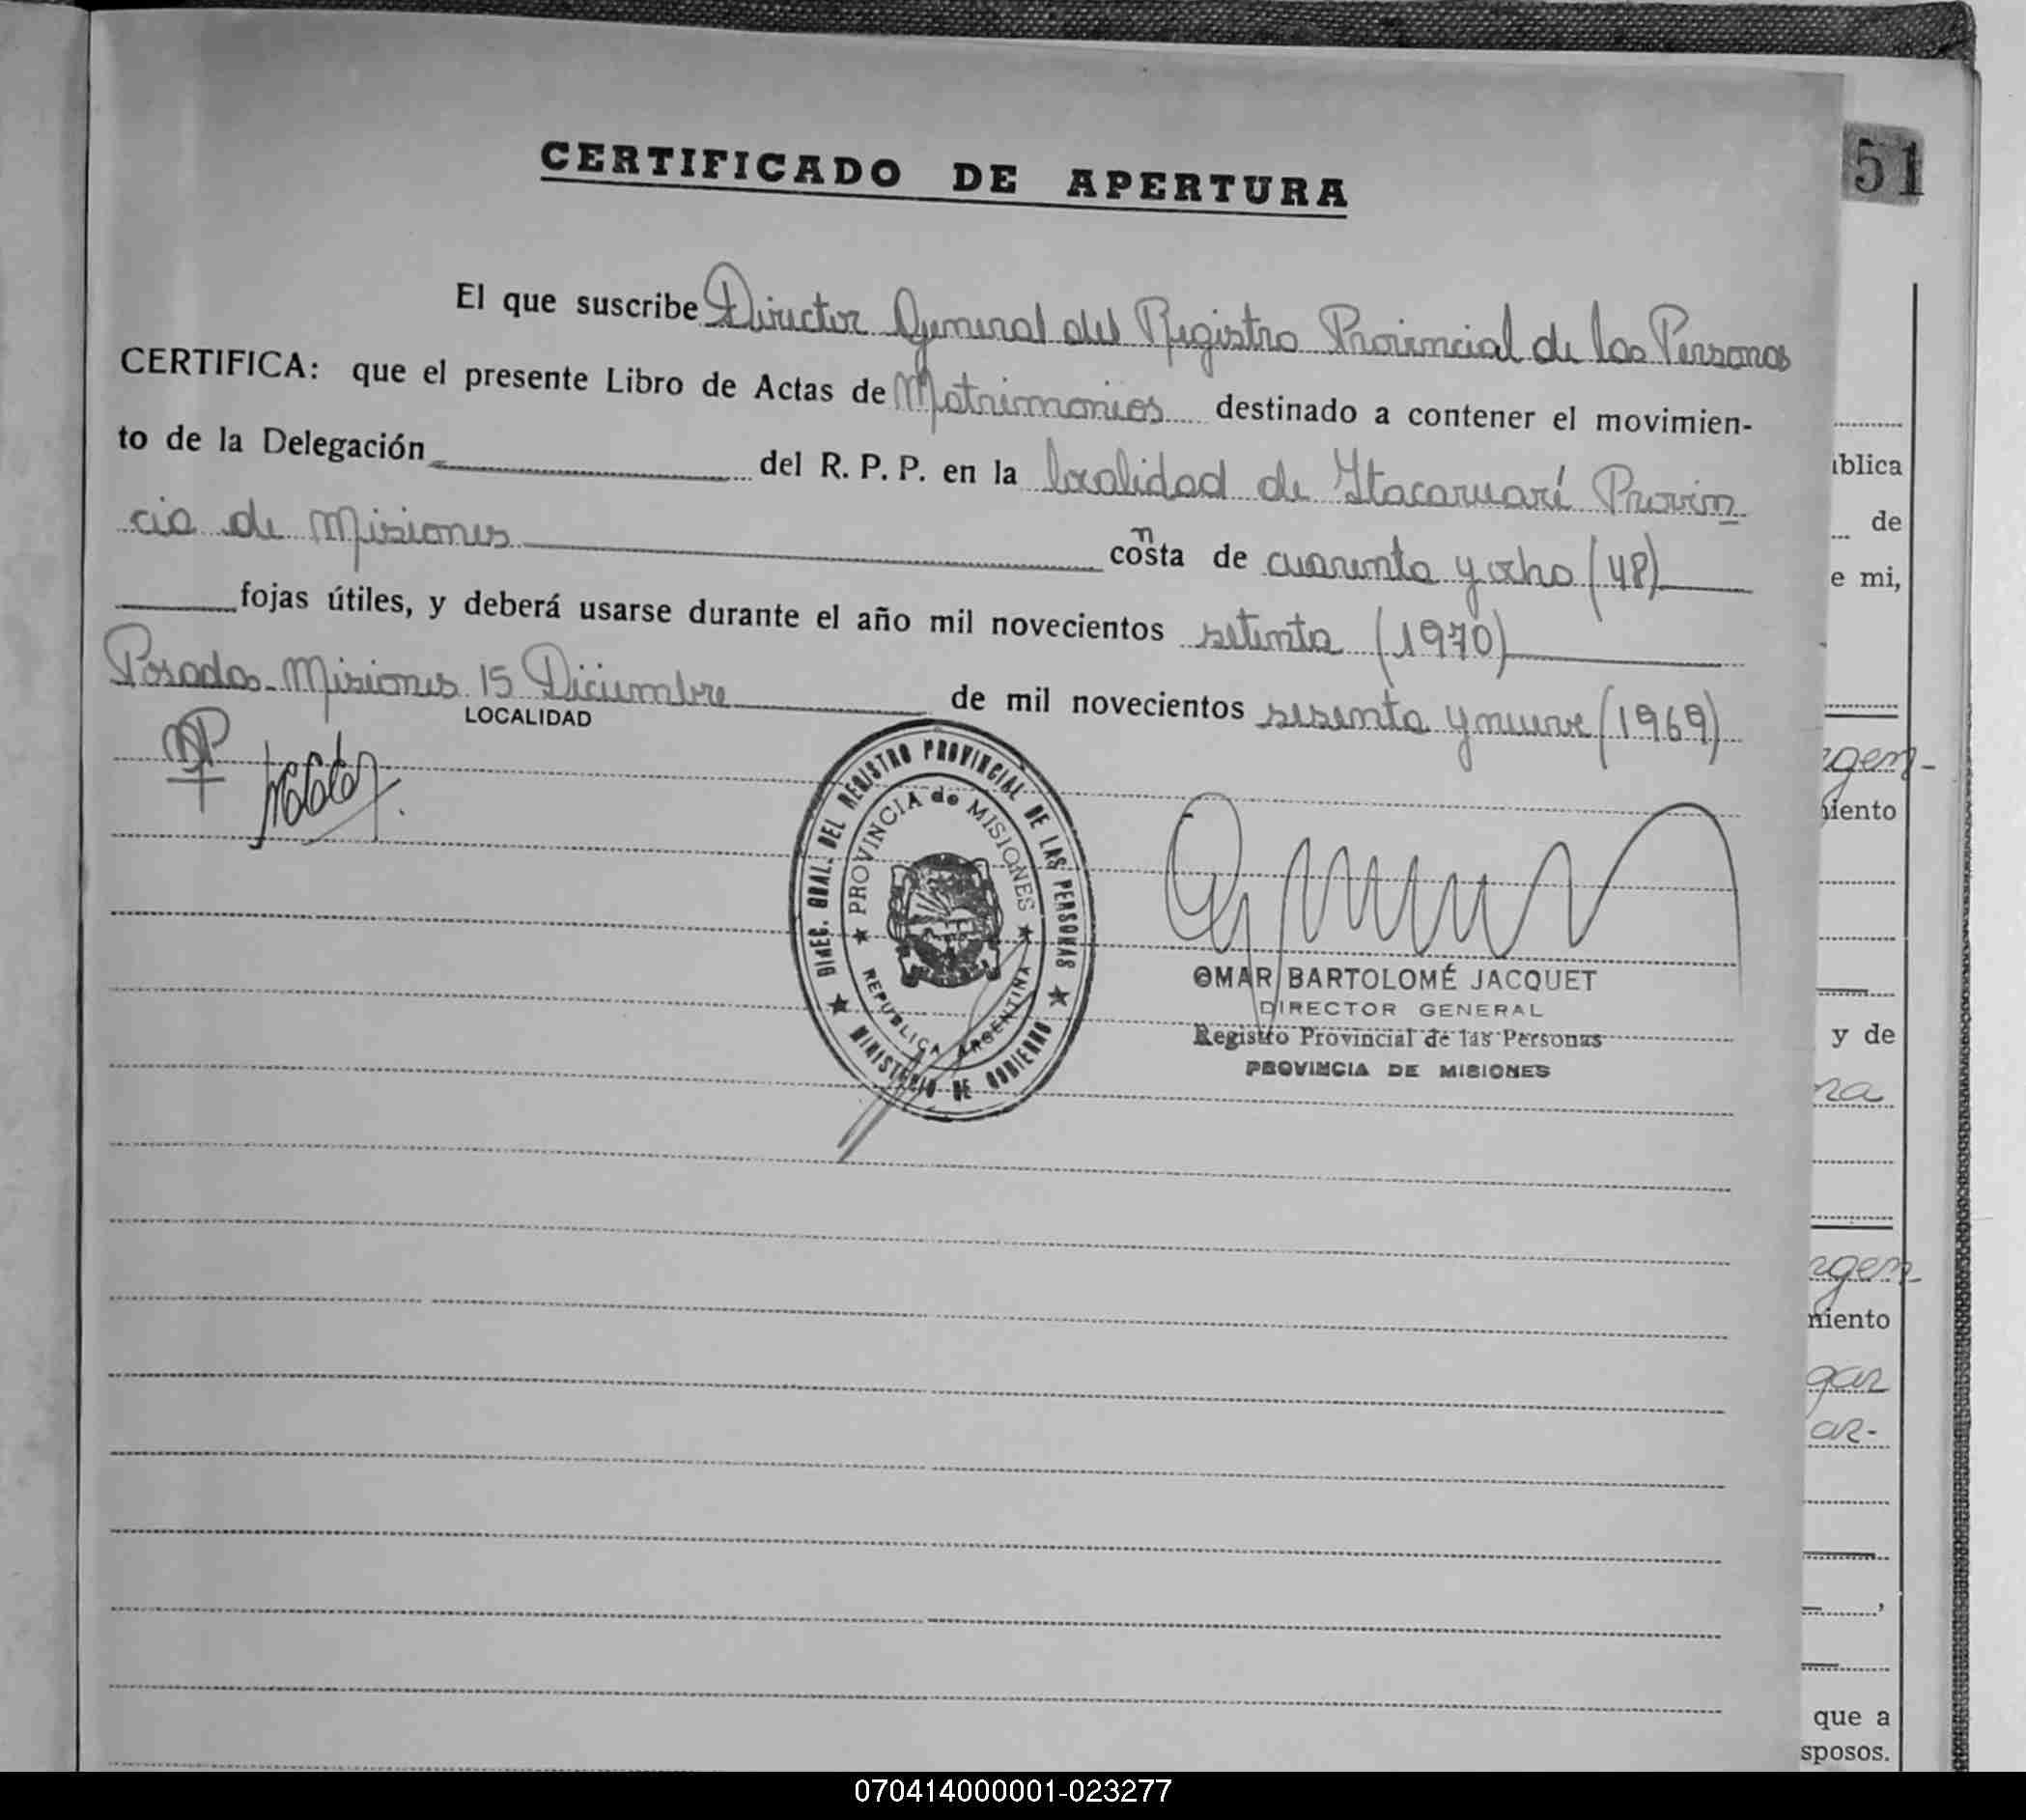 CERTIFICADO DE APERTURA
51
El que suscribe Director General del Registro Provincial de las Personas
CERTIFICA: que el presente Libro de Actas de Matrimonios destinado a contener el movimien-
to de la Delegación del R. P. P. en la localidad de Itacaruaré Provin
cia de Misiones consta de cuarenta y ocho (48)
fojas útiles, y deberá usarse durante el año mil novecientos setenta (1970)
Posadas-Misiones 15 Diciembre de mil novecientos sesenta y nueve (1969)
LOCALIDAD
DIREC. GRAL. DEL REGISTRO PROVINCIAL DE LAS PERSONAS
PROVINCIA de MISIONES
REPUBLICA ARGENTINA
MINISTERIO DE GOBIERNO
OMAR BARTOLOMÉ JACQUET
DIRECTOR GENERAL
Registro Provincial de las Personas
PROVINCIA DE MISIONES
ública
de
e mi,
rgen-
iento
y de
na
rgen
miento
gar
ar-
que a
sposos.
070414000001-023277